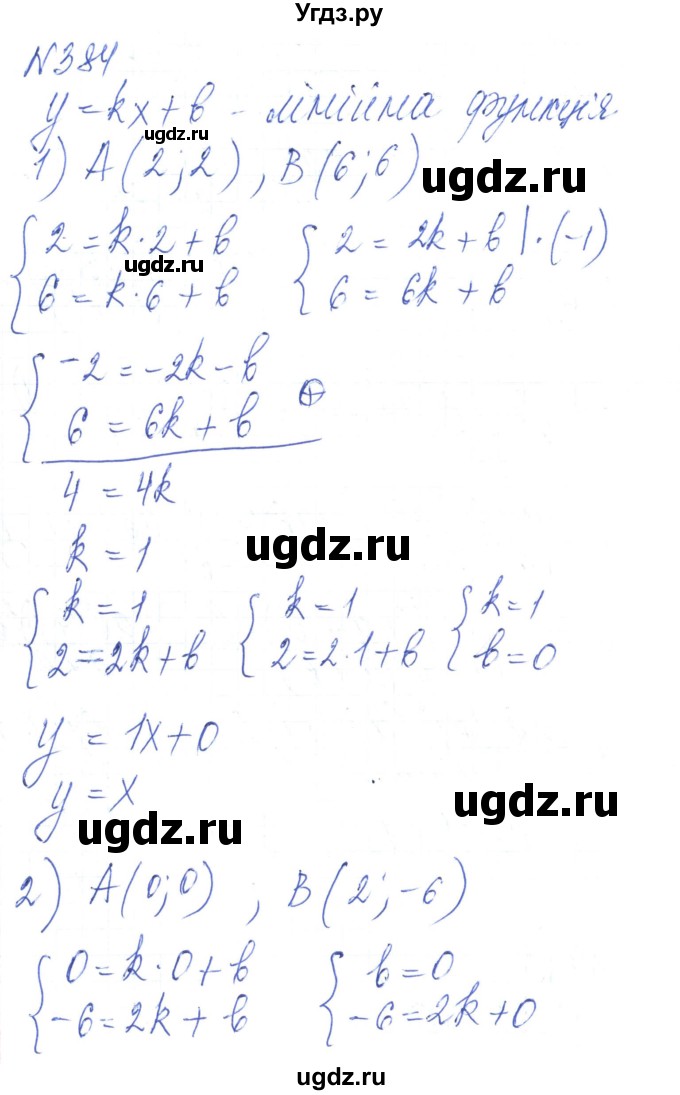 Угдз.ру
№384
y = kx + b - лінійна функція
ugdz.ru
1) A(2;2), B(6;6)
ugdz.ru
{ 2 = k·2 + b { 2 = 2k + b |·(-1)
ugdz.ru
{ 6 = k·6 + b { 6 = 6k + b
{ -2 = -2k - b
{ 6 = 6k + b ⊕
4 = 4k
k = 1
ugdz.ru
{ k = 1 { k = 1 { k = 1
{ 2 = 2k + b { 2 = 2·1 + b { b = 0
y = 1x + 0
y = x
ugdz.ru
ugdz.ru
2) A(0;0), B(2;-6)
{ 0 = k·0 + b { b = 0
{ -6 = 2k + b { -6 = 2k + 0
ugdz.ru